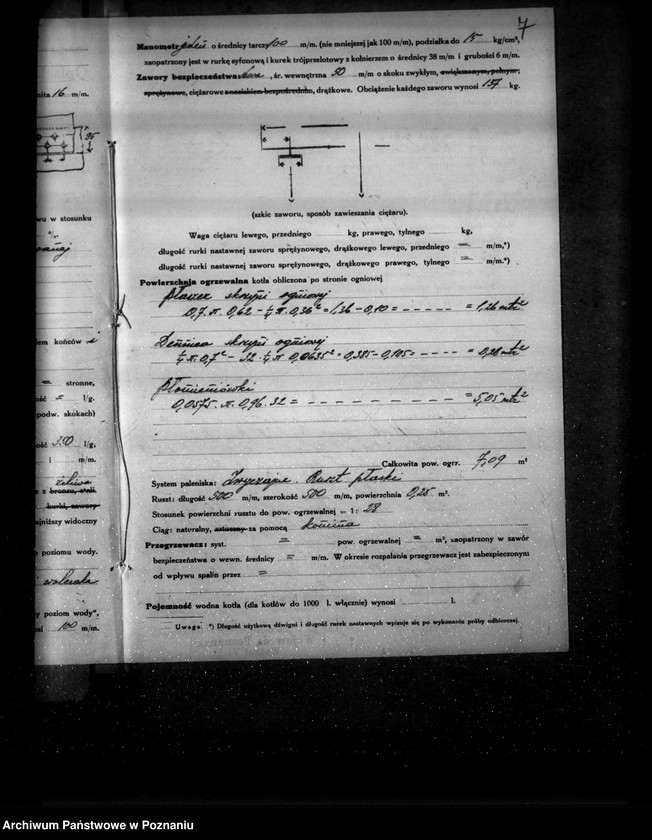 7
Manometr jeden o średnicy tarczy 100 m/m. (nie mniejszej jak 100 m/m), podziałka do 15 kg/cm²,
zaopatrzony jest w rurkę syfonową i kurek trójprzelotowy z kołnierzem o średnicy 38 m/m i grubości 6 m/m.
Zawory bezpieczeństwa: dwa, śr. wewnętrzna 50 m/m o skoku zwykłym, zwiększonym, pełnym,
sprężynowe, ciężarowe z naciskiem bezpośrednim, drążkowe. Obciążenie każdego zaworu wynosi 157 kg.
(szkic zaworu, sposób zawieszania ciężaru).
Waga ciężaru lewego, przedniego kg, prawego, tylnego kg,
długość rurki nastawnej zaworu sprężynowego, drążkowego lewego, przedniego = m/m,*)
długość rurki nastawnej zaworu sprężynowego, drążkowego prawego, tylnego = m/m.*)
Powierzchnia ogrzewalna kotła obliczona po stronie ogniowej
płaszcz skrzyni ogniowej
0,7 . π . 0,62 – ¼ π . 0,36² = 1,36 – 0,10 = – – – – – = 1,26 mtr²
Dennica skrzyni ogniowej
¼ π . 0,7² – 32 . ¼ π . 0,0635² = 0,385 – 0,105 = – – – – = 0,28 mtr²
płomieniówki
0,0575 . π . 0,96 . 32 = – – – – – – – – – = 5,05 mtr²
Całkowita pow. ogrz. 7,09 m²
System paleniska: Zwyczajne. Ruszt płaski
Ruszt: długość 500 m/m, szerokość 500 m/m, powierzchnia 0,25 m².
Stosunek powierzchni rusztu do pow. ogrzewalnej = 1: 28
Ciąg: naturalny, sztuczny za pomocą komina
Przegrzewacz: syst. = pow. ogrzewalnej = m², zaopatrzony w zawór
bezpieczeństwa o wewn. średnicy = m/m. W okresie rozpalania przegrzewacz jest zabezpieczony
od wpływu spalin przez =
Pojemność wodna kotła (dla kotłów do 1000 l. włącznie) wynosi l.
Uwaga: *) Długość użytkową dźwigni i długość rurek nastawnych wpisuje się po wykonaniu próby odbiorczej.
16 m/m.
95
wu w stosunku
%.
iem końców
= stronne,
ość = l/g.
podw. skokach)
ość 350 l/g,
i m/m.
żeliwa
z bronzu, stali
kurki, zawory
ajniższy widoczny
o poziomu wody.
y poziom wody",
si 100 m/m.
Archiwum Państwowe w Poznaniu